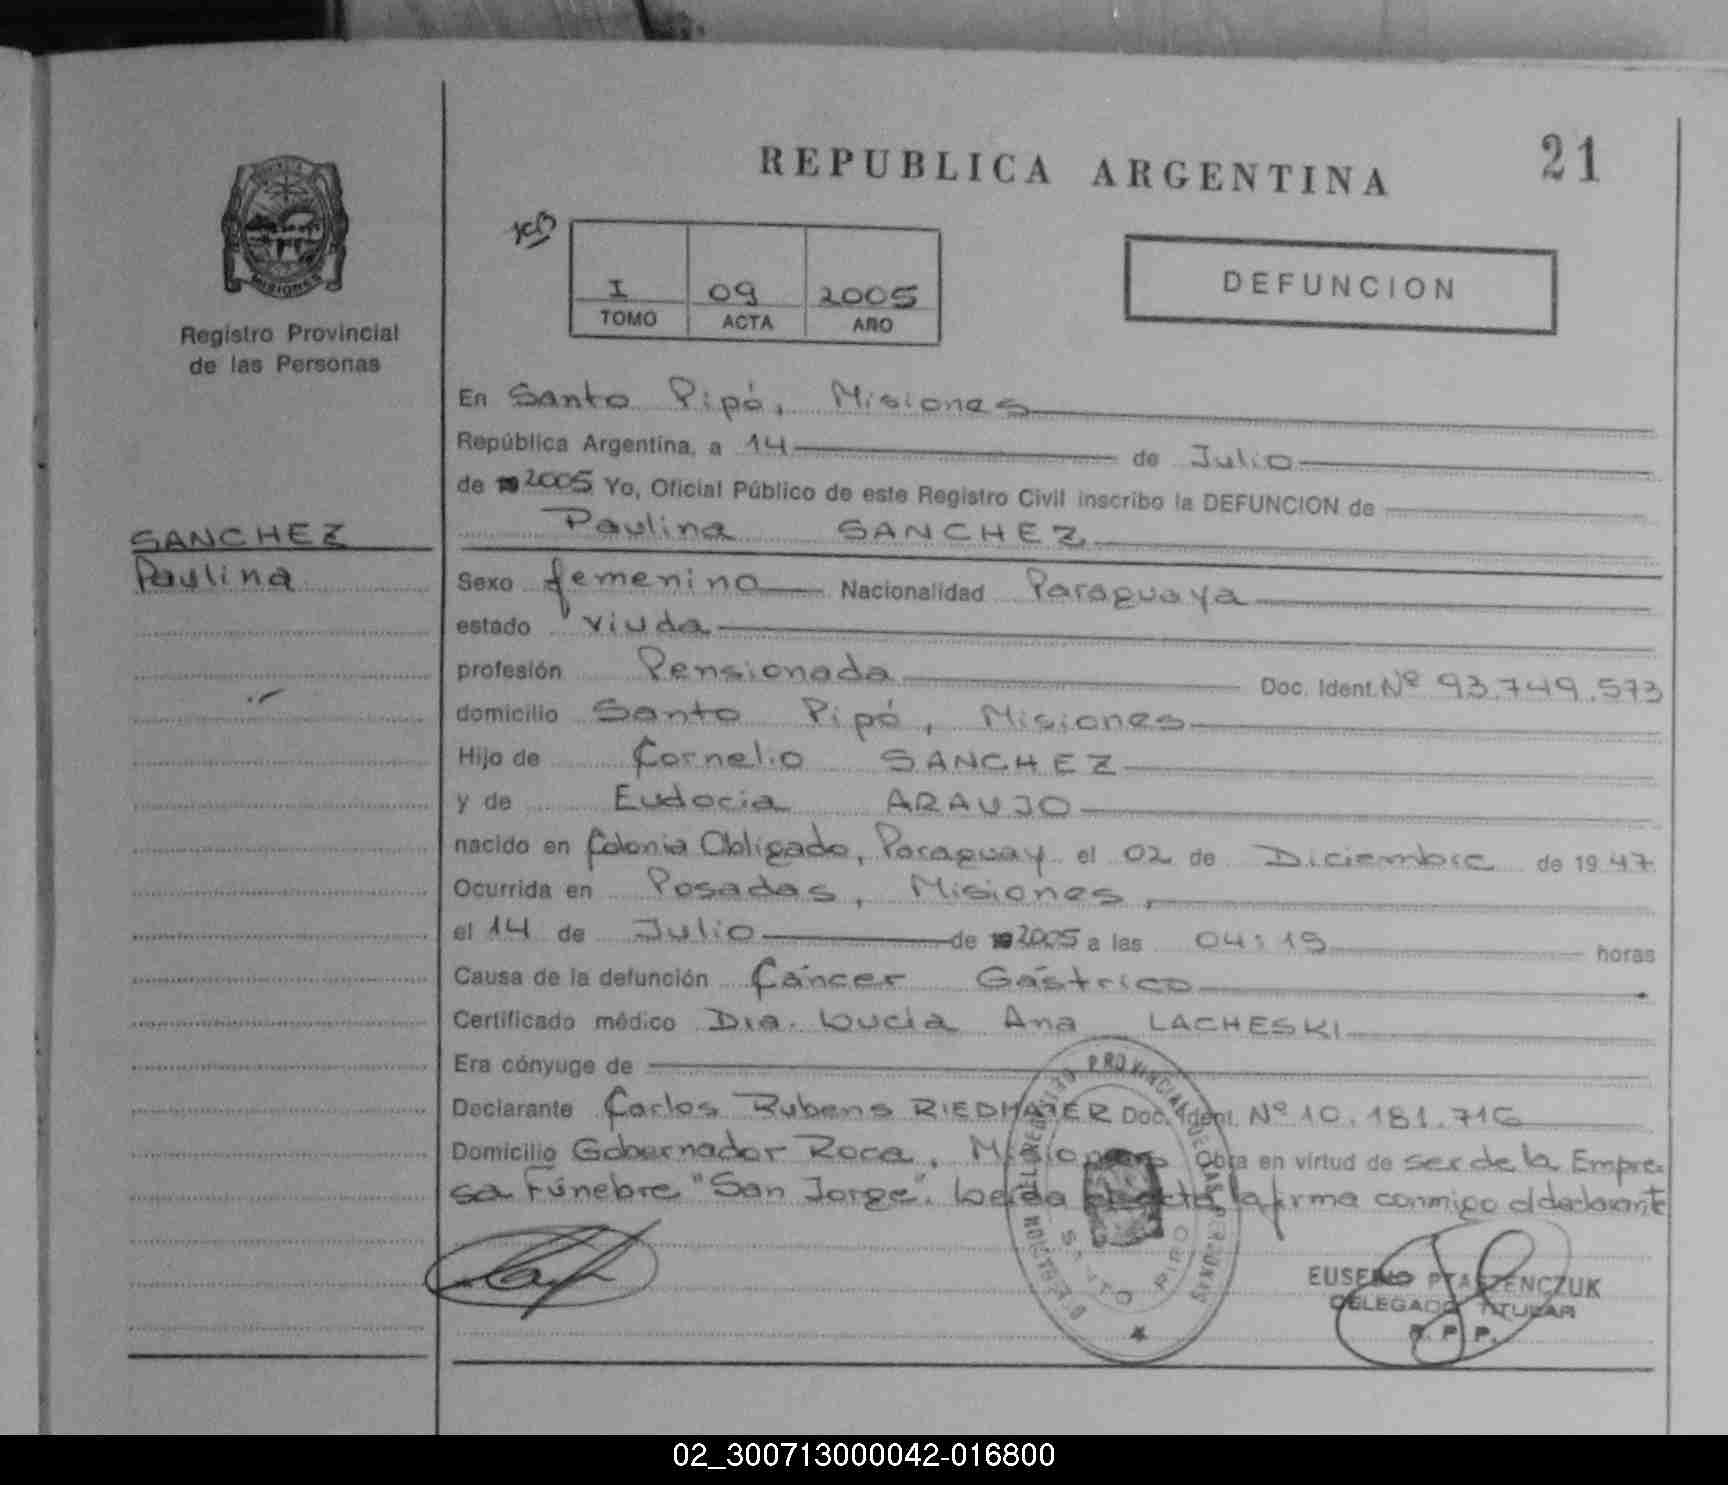 REPUBLICA ARGENTINA
21
MISIONES
Registro Provincial
de las Personas
I 09 2005
TOMO ACTA AÑO
DEFUNCION
En Santo Pipó, Misiones
República Argentina, a 14 de Julio
de 2005 Yo, Oficial Público de este Registro Civil inscribo la DEFUNCION de
Paulina SANCHEZ
SANCHEZ
Paulina
Sexo femenino Nacionalidad Paraguaya
estado viuda
profesión Pensionada Doc. Ident. Nº 93.749.573
domicilio Santo Pipó, Misiones
Hijo de Cornelio SANCHEZ
y de Eudocia ARAUJO
nacido en Colonia Obligado, Paraguay el 02 de Diciembre de 1947
Ocurrida en Posadas, Misiones,
el 14 de Julio de 2005 a las 04:15 horas
Causa de la defunción Cáncer Gástrico
Certificado médico Dra. Lucia Ana LACHESKI
Era cónyuge de
Declarante Carlos Rubens RIEDMAJER Doc. Ident. Nº 10.181.716
Domicilio Gobernador Roca, Misiones Obra en virtud de ser de la Empre-
sa Fúnebre "San Jorge". Leída el acta la firma conmigo el declarante
DELEGACION DEL REGISTRO PROVINCIAL DE LAS PERSONAS
SANTO PIPO
EUSEBIO PTASZENCZUK
DELEGADO TITULAR
R. P. P.
02_300713000042-016800